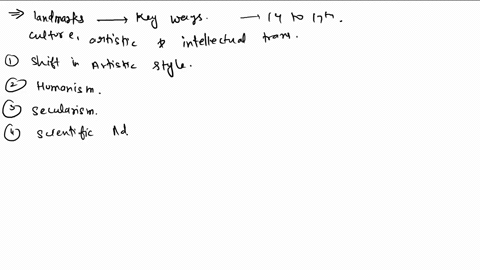 ⇒ landmarks → Key ways. → 14 to 17th.
culture, artistic & intellectual tran.
① Shift in Artistic style.
② Humanism.
③ Secularism.
④ Scientific Ad